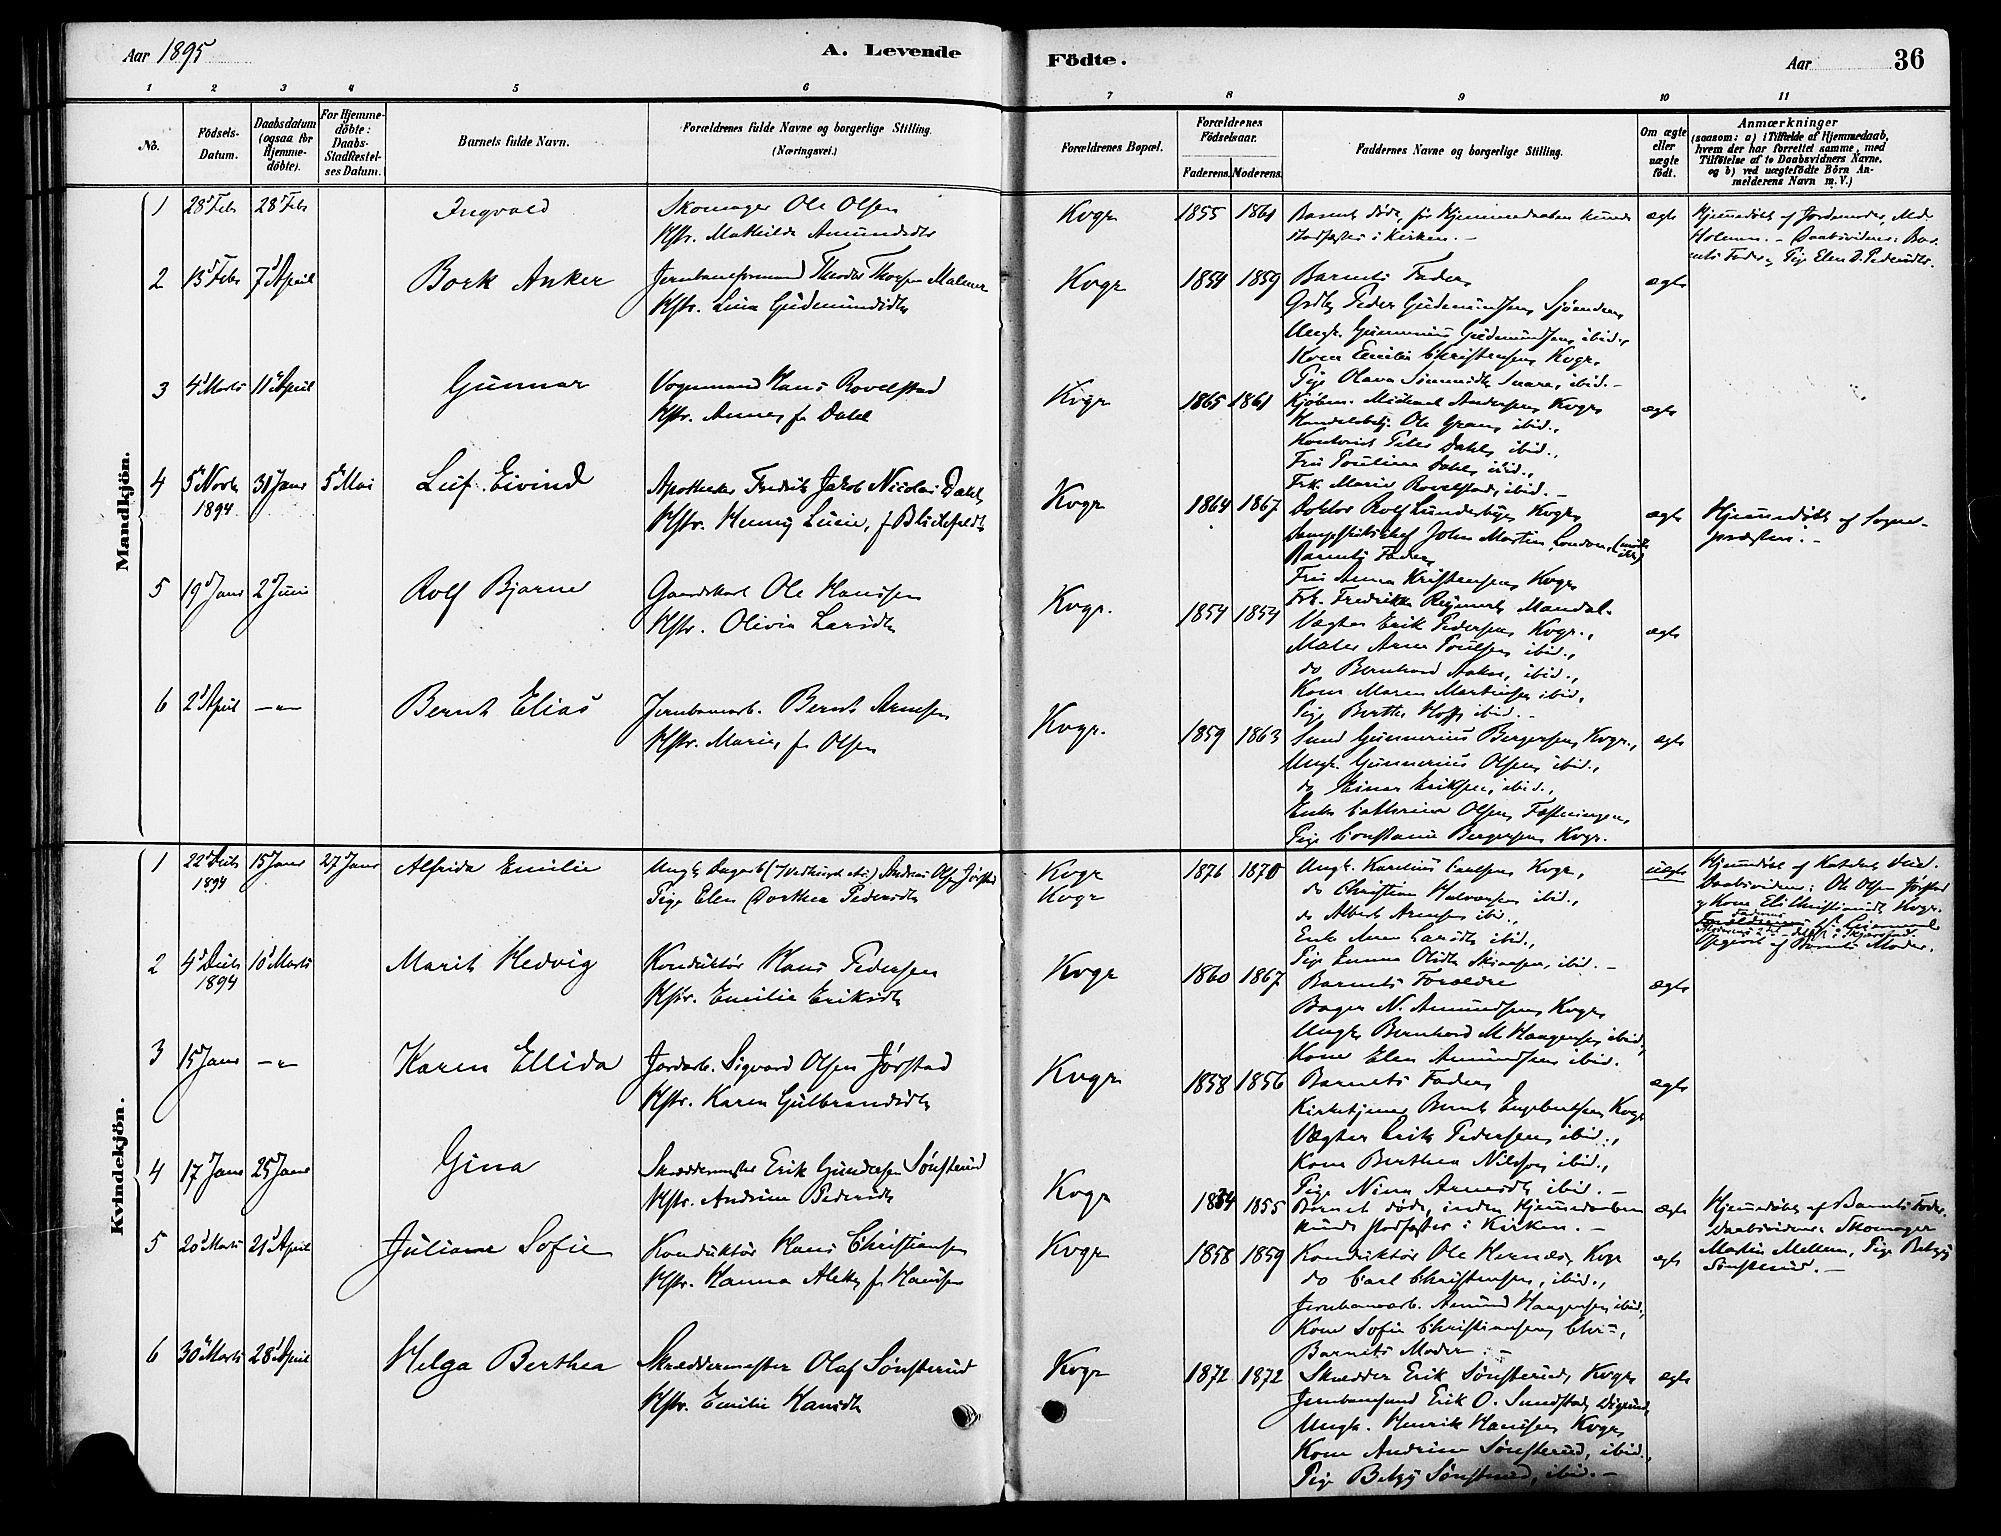 Aar 1895
A. Levende
Födte.
Aar
36
1 2 3 4 5 6 7 8 9 10 11
No.
Födsels-Datum.
Daabsdatum (ogsaa for Hjemme-døbte).
For Hjemme-døbte: Daabs-Stadfæstel-ses Datum.
Barnets fulde Navn.
Forældrenes fulde Navne og borgerlige Stilling.
(Næringsvei.)
Forældrenes Bopæl.
Forældrenes Födselsaar.
Faderens. Moderens.
Faddernes Navne og borgerlige Stilling.
Om ægte eller uægte født.
Anmærkninger
(saasom: a) i Tilfælde af Hjemmedaab,
hvem der har forrettet samme, med
Tilföielse af to Daabsvidners Navne,
og b) ved uægtefödte Börn An-
melderens Navn m.V.)
Mandkjön.
1 28 Feb 28 Feb Ingvald
Skomager Ole Olsen
Hstr. Mathilde Amundsdtr
Kvgr 1855 1861
Barnet døde, før Hjemmedaaben kunde
stadfæstes i Kirken.-
ægte
Hjemmedøbt af Jordemoder
Holmen. - Daabsvidner: Bar-
nets Fader, Pige Elen D. Pedersdtr.
2 13 Feb 7 April Bork Anker
Jernbaneformand Thodor Thorsen Malmer
Hstr. Lina Gudmundsdtr
Kvgr 1854 1859
Barnets Fader
Peder Gudmundsen
Ungk. Gudmundsen, ibid.,
Kone Emilie Christensen Kvgr.
Pige Olava ibid.-
ægte
3 4 Marts 11 April Gunnar
Vognmand Hans Rovelstad
Hstr. Anna f. Dahl
Kvgr 1865 1861
Kjøbm. Michael Andersen, Kvgr
Handelsbetj. Ole Gran, ibid.,
Kontorist Peter Dahl, ibid.,
Fru Pouline Dahl, ibid.,
Frk. Marie Rovelstad, ibid.-
ægte
4 5 Novb 1894 31 Janr 5 Mai Leif Eivind
Apotheker Fredrik Jakob Nicolai Dahl
Hstr. Henny Lucie, f. Blichfeldt
Kvgr 1864 1867
Doktor Rolf Lunderbye Kvgr
John Martin, London,
Barnets Fader
Fru Anna Kristensen Kvgr
Frk. Fredrikke Reymert Mandal.
ægte
Hjemmedøbt af Sogne-
præsten.-
5 19 Janr 2 Juni Rolf Bjarne
Gaardskarl Ole Hansen
Hstr. Olivia Larsdtr
Kvgr. 1854 1854
Vægter Erik Pedersen Kvgr.,
Maler Arne Poulsen ibid.,
do Bernhard Aaker, ibid.,
Kone Maren Martinsen ibid.,
Pige Berthe Hoff, ibid.-
ægte
6 2 April -"- Bernt Elias
Jernbanearb. Bernt Arnesen
Hstr. Marie, f. Olsen
Kvgr. 1859 1863
Gunnerius Bergersen, Kvgr.,
Ungk. Gunnerius Olsen, ibid.,
do Einar Eriksen, ibid.,
Enke Cathrine Olsen, Fæstningen
Pige Constance Bergersen Kvgr.
ægte
Kvindekjön.
1 22 Decb 1894 15 Janr 27 Janr Alfrida Emilie
Ungk. Andreas Olsen Jørstad
Pige Elen Dorthea Pedersdtr
Kvgr
Kvgr
1876 1870
Ungk. Karelius Carlsen Kvgr,
do Christian Halvorsen ibid.,
do Albert Arnesen ibid.,
Enke Anne Larsdtr ibid.,
Pige Emma Olsdtr ibid.-
uægte
Hjemmedøbt af
Daabsvidner: Ole Olsen Jørstad
og Kone Eli Christiansdtr Kvgr.
Opgivet af Barnets Moder.
2 4 Decb 1894 10 Marts Marit Hedvig
Konduktør Hans Pedersen
Hstr. Emilie Eriksdtr
Kvgr 1860 1867
Barnets Forældre
Bager N. Amundsen, Kvgr
Ungk. Bernhard M. Haagensen, ibid.,
Kone Elen Amundsen ibid.
ægte
3 15 Janr -"- Karen Ellida
Jordarb. Sigvard Olsen Jørstad
Hstr. Karen Gulbrandsdtr
Kvgr 1858 1856
Barnets Fader,
Kirketjener Bernt Engebretsen, Kvgr
Vægter Erik Pedersen, ibid.,
Kone Berthea Nilsson, ibid.,
Pige Nina Arnesdtr ibid.-
ægte
4 17 Janr 25 Janr Gina
Skræddermester Erik Gundersen Sønsterud
Hstr. Andrine Pedersdtr
Kvgr 1854 1855
Barnet døde, inden Hjemmedaaben
kunde stadfæstes i Kirken.-
ægte
Hjemmedøbt af Barnets Fader.
Daabsvidner: Skomager
Martin Mellem, Pige Betzy
Sønsterud.-
5 20 Marts 21 April Juliane Sofie
Konduktør Hans Christiansen
Hstr. Hanna Alette f. Hansen
Kvgr 1858 1859
Konduktør Ole Hernæs, Kvgr
do Carl Christensen, ibid.,
Jernbanearb. Amund Haagensen, ibid.,
Kone Sofie Christiansen, Chr-a,
Barnets Moder.-
ægte
6 30 Marts 28 April Helga Berthea
Skræddermester Olaf Sønsterud
Hstr. Emilie Hansdtr
Kvgr 1872 1872
Skrædder Erik Sønsterud, Kvgr
Erik O. Sundstad,
Ungk. Henrik Hansen, Kvgr,
Kone Andrine Sønsterud, ibid.,
Pige Betzy Sønsterud, ibid.-
ægte